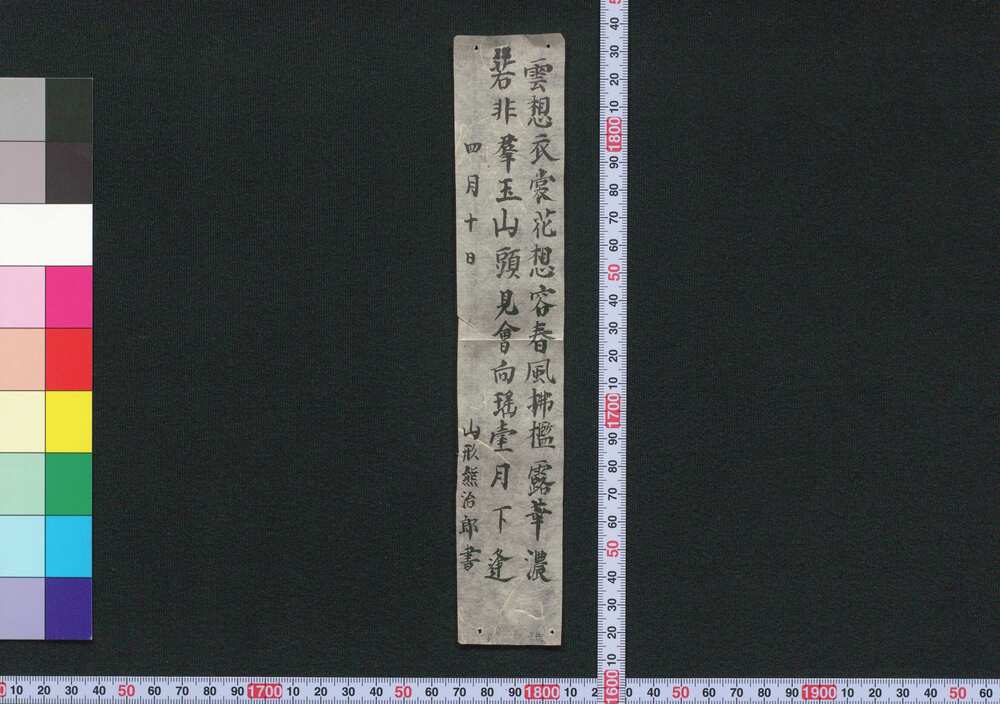 雲想衣裳花想容春風拂檻露華濃
若非羣玉山頭見會向瑤臺月下逢
四月十日
山形熊治郎書
40
30
20
10
1800
90
80
70
60
50
40
30
20
10
1700
90
80
70
60
50
40
30
20
10
1600
10 20 30 40 50 60 70 80 90 1700 10 20 30 40 50 60 70 80 90 1800 10 2 0 30 40 50 60 70 80 90 1900 10 20 30 40 50 60